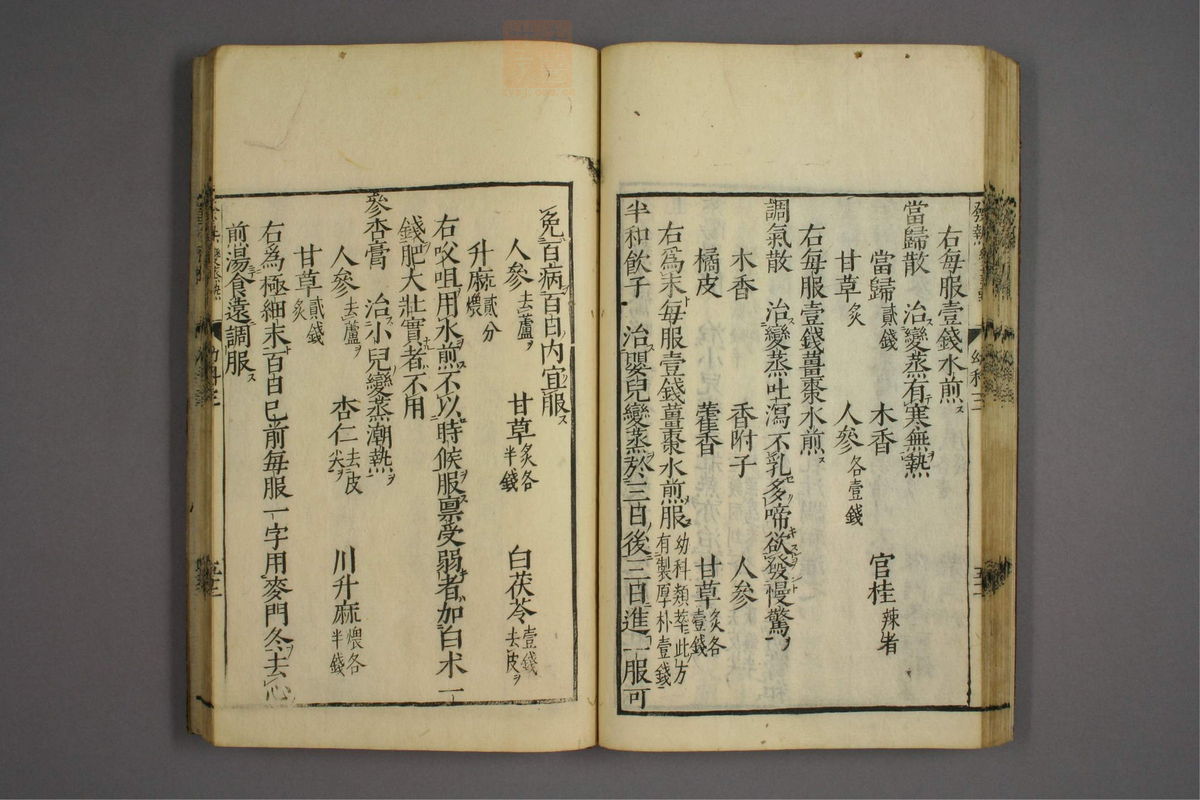 右每服壹錢水煎ス
當歸散　治ス變蒸有テ寒無熱ヲ
當歸貳錢　木香　官桂辣者
甘草炙　人參各壹錢
右每服壹錢薑棗水煎ス
調氣散　治ス變蒸吐瀉不乳多啼欲發慢驚ヲ
木香　香附子　人參
橘皮　藿香　甘草炙各壹錢
右爲末每服壹錢薑棗水煎服ス幼科類萃此方有製厚朴壹錢
半和飲子　治ス嬰兒變蒸於三日後三日進一服可
免百病百日内宜服ス
人參去蘆ヲ　甘草炙各半錢　白茯苓壹錢去皮ヲ
升麻貳分煨
右㕮咀用水煎不以時候服禀受弱者加白朮一
錢肥大壯實者不用
參杏膏　治小兒變蒸潮熱ヲ
人參去蘆ヲ　杏仁去皮尖ヲ　川升麻煨各半錢
甘草貳錢炙
右爲極細末百日已前每服一字用麥門冬去心
煎湯食遠調服ス